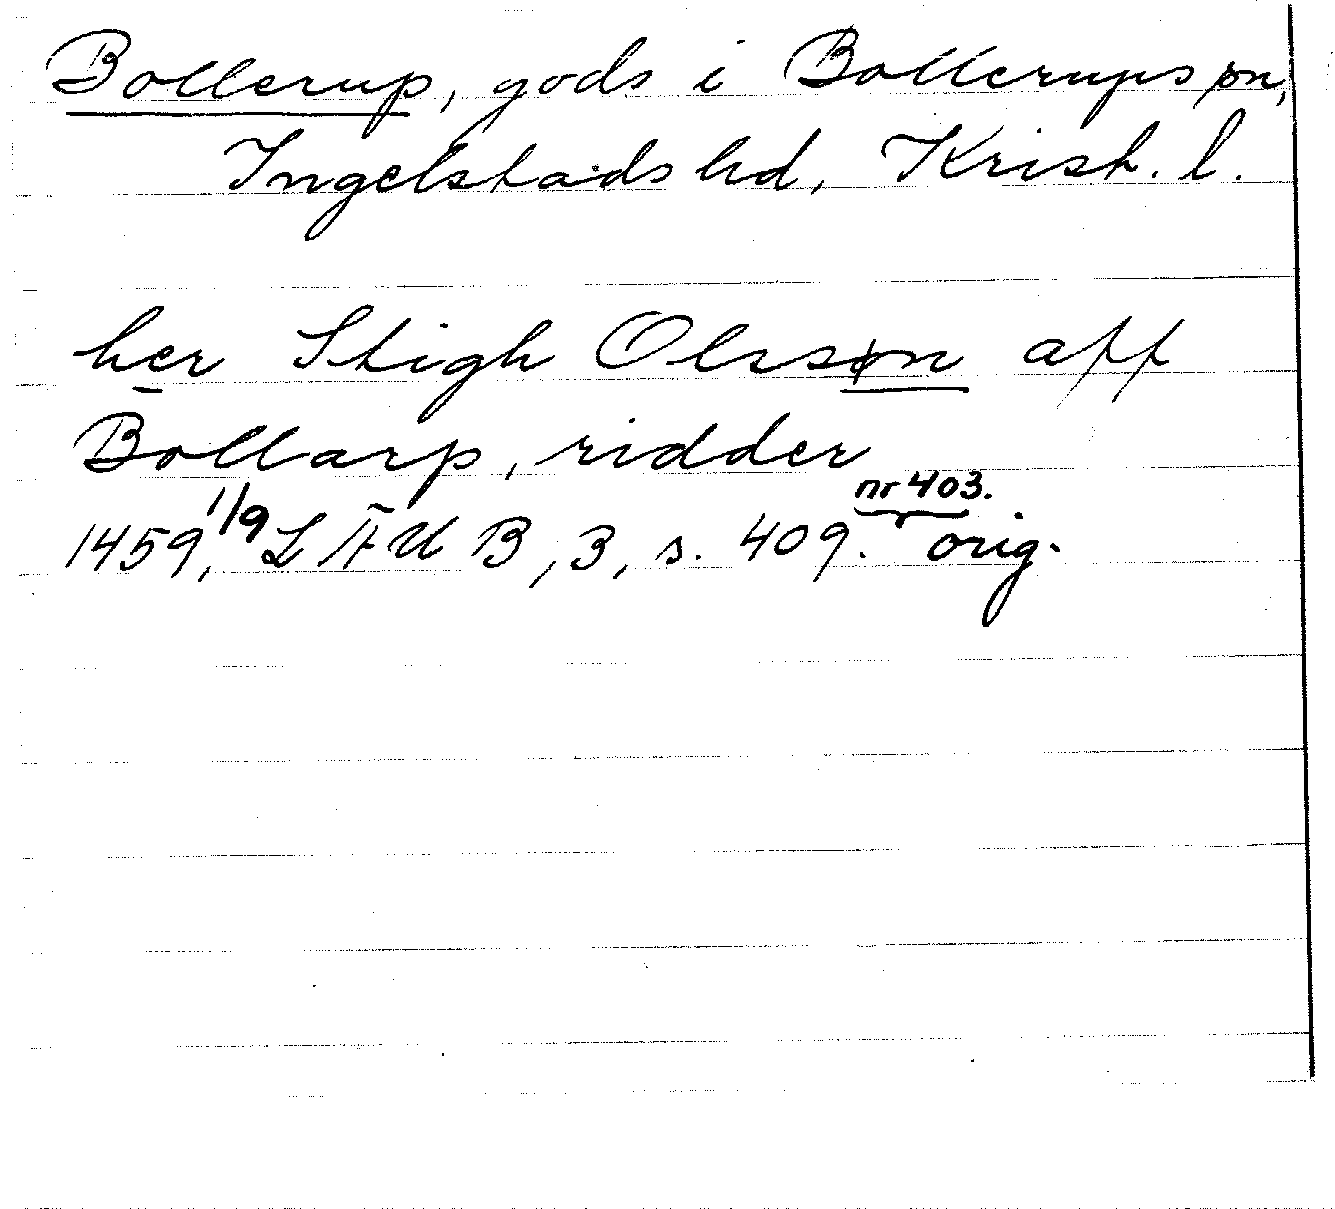 Bollerup, gods i Bollerups sn,
Ingelstads hd, Krist. l.
her Stigh Olssøn aff
Bollarp, ridder
nr 403.
1459, 1/9 LÄUB, 3, s. 409. orig.